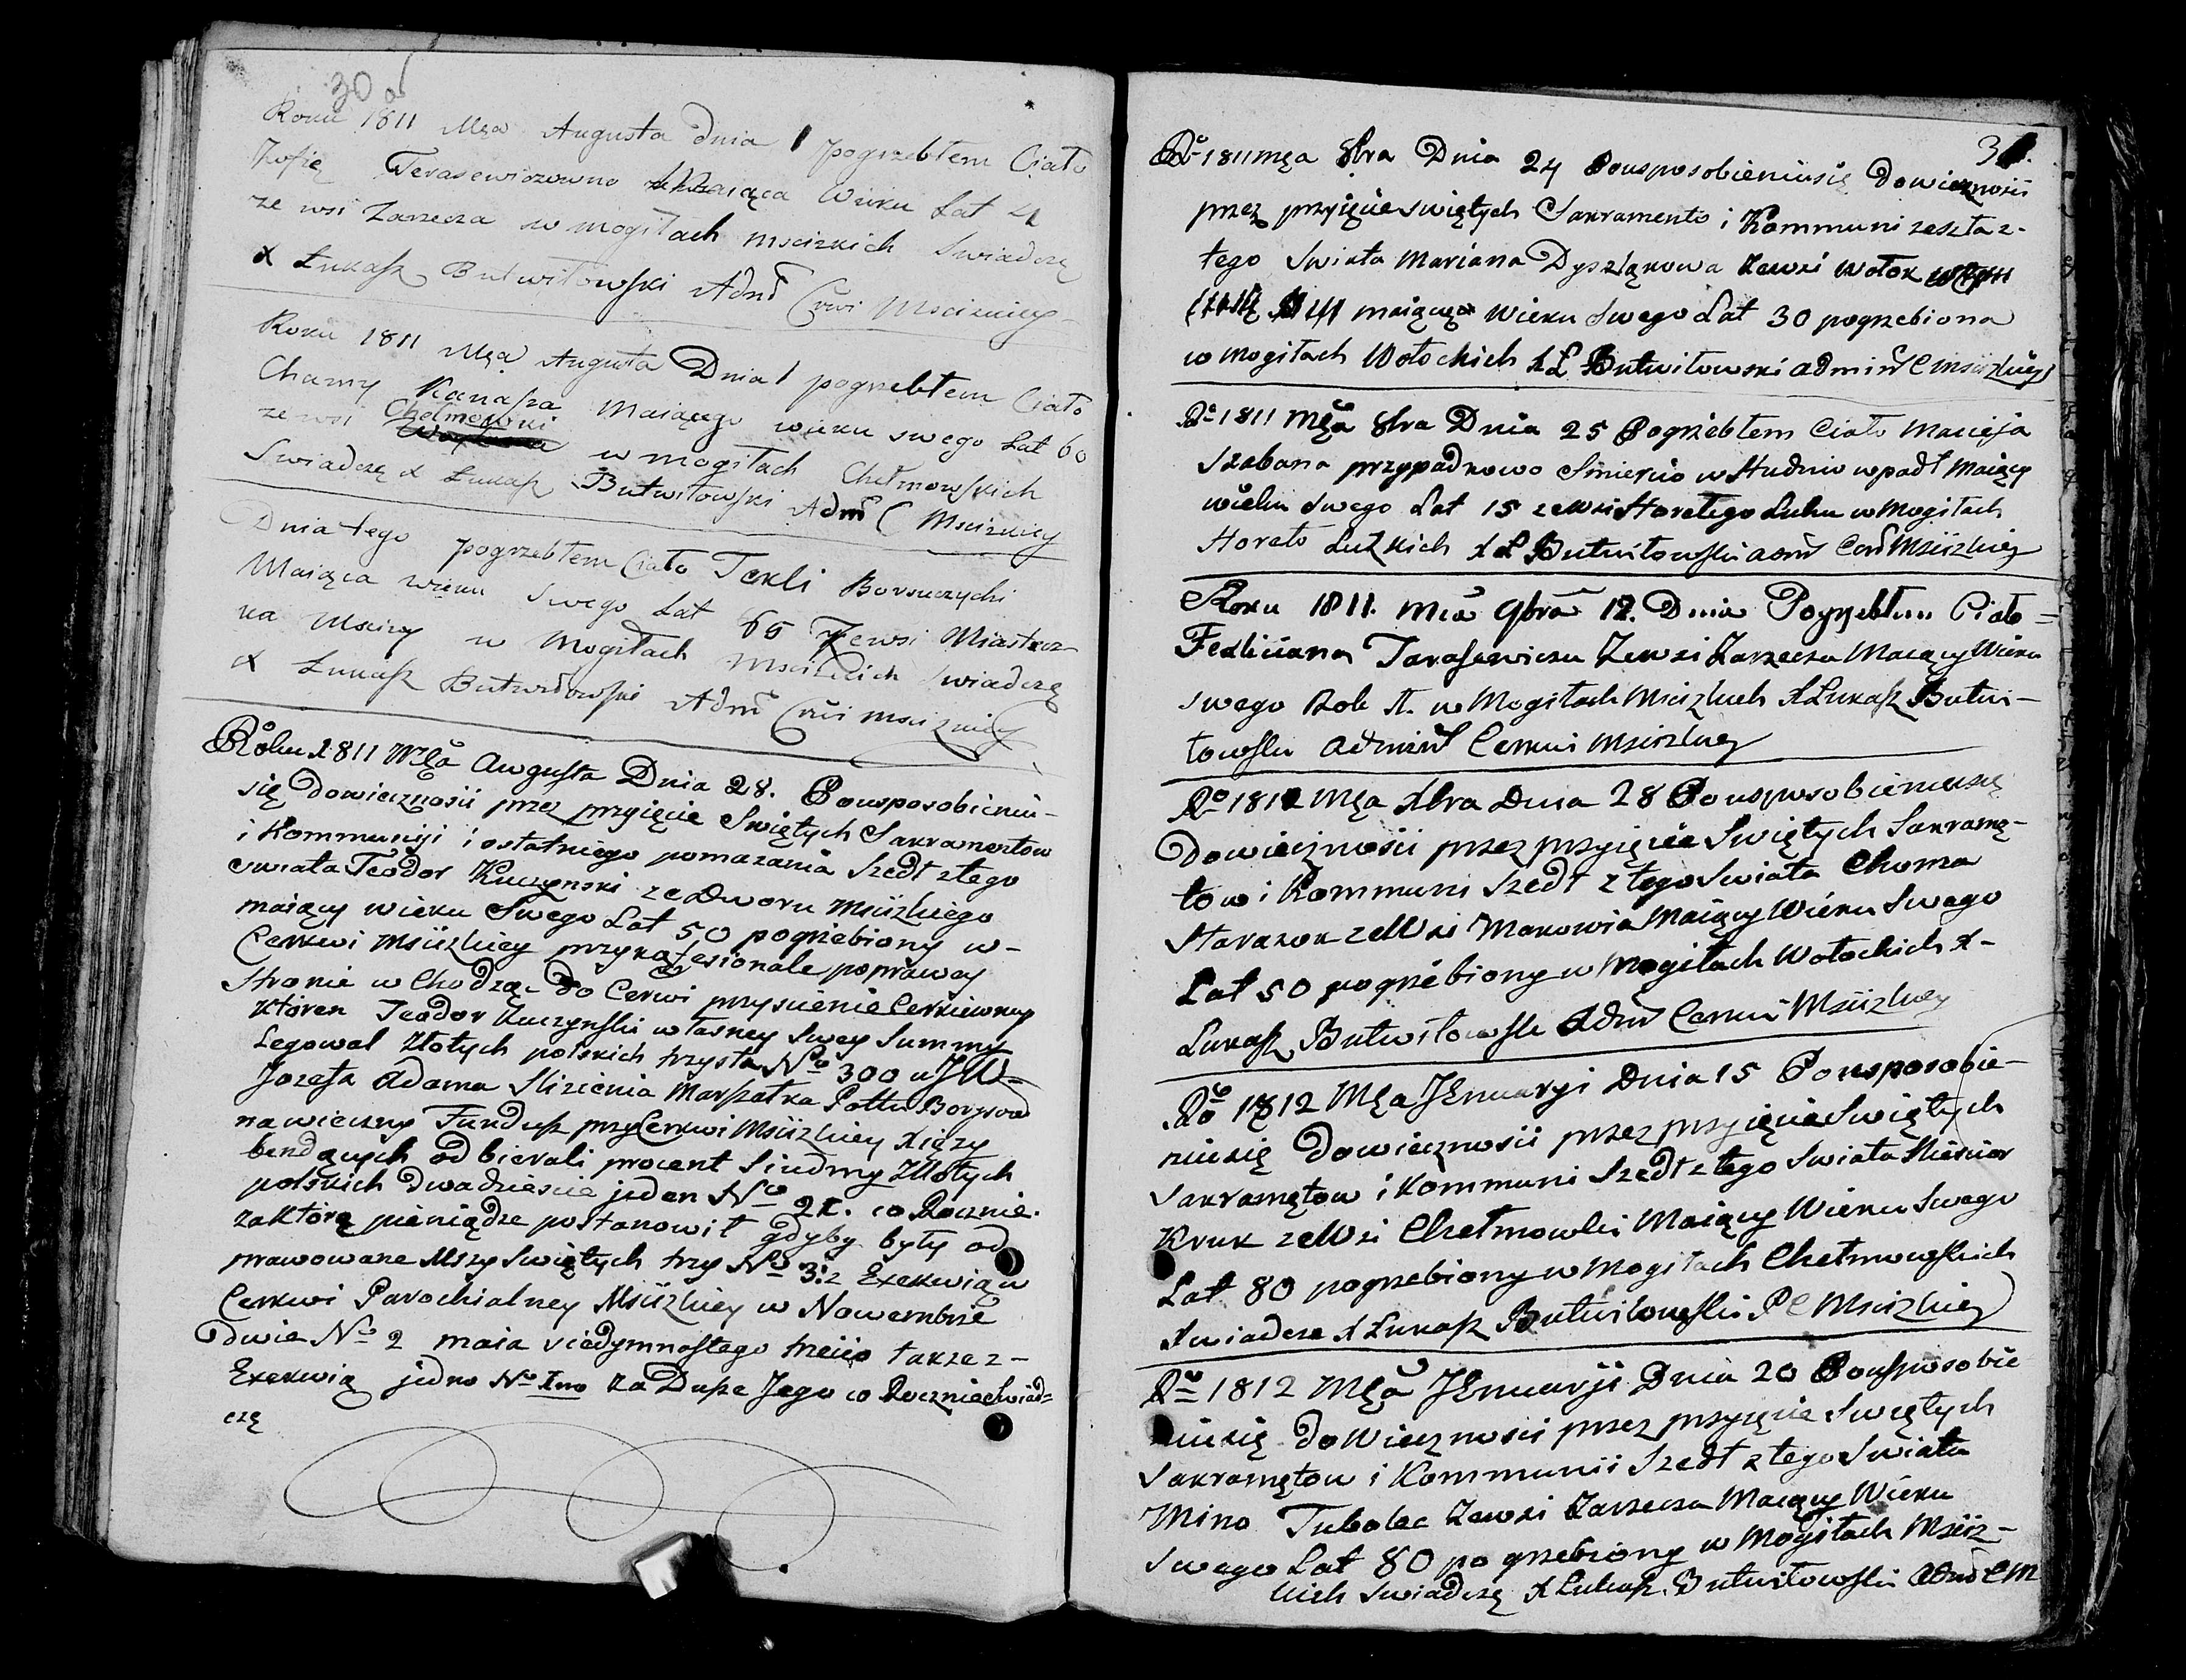 30
Roku 1811 Mca Augusta dnia 1 pogrzebłem Ciało
Zofię Terasewiczowno Maiąca Wieku Lat
ze wsi Zarzecza w mogiłach mscizkich Swiadczę
X Łukasz Butwiłowski Adm Crwi Mscizkiey
Roku 1811 Mca Augusta Dnia 1 pogrzebłem Ciało
Chamy Kanasza Maiącego wieku swego Lat 60
ze wsi Chełmowki w mogiłach Chełmowskich
Swiadczę X Łukasz Butwiłowski Adm C Mscizkiey
Dnia tego pogrzebłem Ciało Tekli Borsuczychi
Maiąca wieku Swego Lat 65 Zewsi Miastecz-
ka Mscizy w Mogiłach Mscizkich Swiadczę
X Łukasz Butwiłowski Adm Crwi Mscizkiey
Roku 1811 Mca Awgusta Dnia 28. Pousposobieniu-
się dowiecznosii przez przyięcie Swiętych Sakramentow
i Kommuniji i ostatniego pomazania Szedł ztego
swiata Teodor Kuczynski ze Dworu Msiizkiego
maiący wieku Swego Lat 50 pogrzebiony w-
Cerkwi Msiizkiey przy kafesionale poprawey
Stronie w Chodząc do Cerwi przyscienie Cerkiewney
Ktoren Teodor Kuczynski własney Swey Summy
Legował Złotych polskich trzysta No 300 u JW-
Jozefa Adama Slizienia Marszałka Pottu Borysow
na wieczny Fundusz przy Cerkwi Msiizkiey Xięzy
bendących odbierali procent Siudmy Złotych
polskich dwadziescie jeden No 21. co Rocznie.
zaktorą pieniądze postanowił gdyby były od
prawowane Mszy Swiętych trzy No 3: z Exekwią w
Cerkwi Parochialney Msiizkiey w Nowembrze
dwie No 2 maia siedymnastego treiio takze z-
Exekwią jedno No Imo za Dusze Jego co Rocznie Swiad=
czę
31.
Ro 1811 mca 8bra Dnia 24 Pousposobieniusię dowiecznosii
przez przyięcie swiętych Sakramento i Kommuni zeszła z-
tego Swiata Mariana Dyszlęnowa Zewsi Wołok
maiąca Wieku Swego Lat 30 pogrzebiona
w Mogiłach Wołockich X Ł Butwiłowski Admin C Msiizkiey
Ro 1811 Mca 8bra Dnia 25 Pogrzebłem Ciało Macieja
Szabana przypadkowo Smiercio w Studnio wpadł Maiący
wieku Swego Lat 15 ze wsi Horełego Luhu w Mogiłach
Horeło Luzkich X Ł Butwiłowski Adm Cer Msiizkiey
Roku 1811. Mca 9bra 12. Dnia Pogrzebłem Ciało=
Felicijana Tarasewicza Zewsi Zarzecza Maiący Wieku
swego Rok 1. w Mogiłach Msiizkich X Łukasz Butwi-
łowski Admin Cerkwi Msiizkiey
Ro 1812 Mca Xbra Dnia 28 Pousposobieniusię
Dowiecznosii przez przyięcie Swiętych Sakramę-
tow i Kommuni Szedł z tego Swiata Choma
Starazok ze Wsi Makowia Maiący Wieku Swego
Lat 50 pogrzebiony w Mogiłach Wołockich X-
Łukasz Butwiłowski Adm Cerkwi Msiizkiey
Ro 1812 Mca JEnuaryi Dnia 15 Pousposobie-
niusię Dowiecznosii przez przyięcie Swiętych
Sakramętow i Kommuni Szedł z tego Swiata
Kruk ze Wsi Chełmowki Maiący Wieku Swego
Lat 80 pogrzebiony w Mogiłach Chełmowskich
Swiadcze X Łukasz Butwiłowski P C Msiizkiey
Ro 1812 Mca JEnuaryi Dnia 20 Pousposobie
niusię do Wiecznosci przez przyięcie Swiętych
Sakramętow i Kommunii Szedł z tego Swiata
Mina Tubolec Zewsi Zarzecza Maiący Wieku
Swego Lat 80 pogrzebiony w Mogiłach Msiiz-
kich Swiadczę X Łukasz Butwiłowski Adm C M